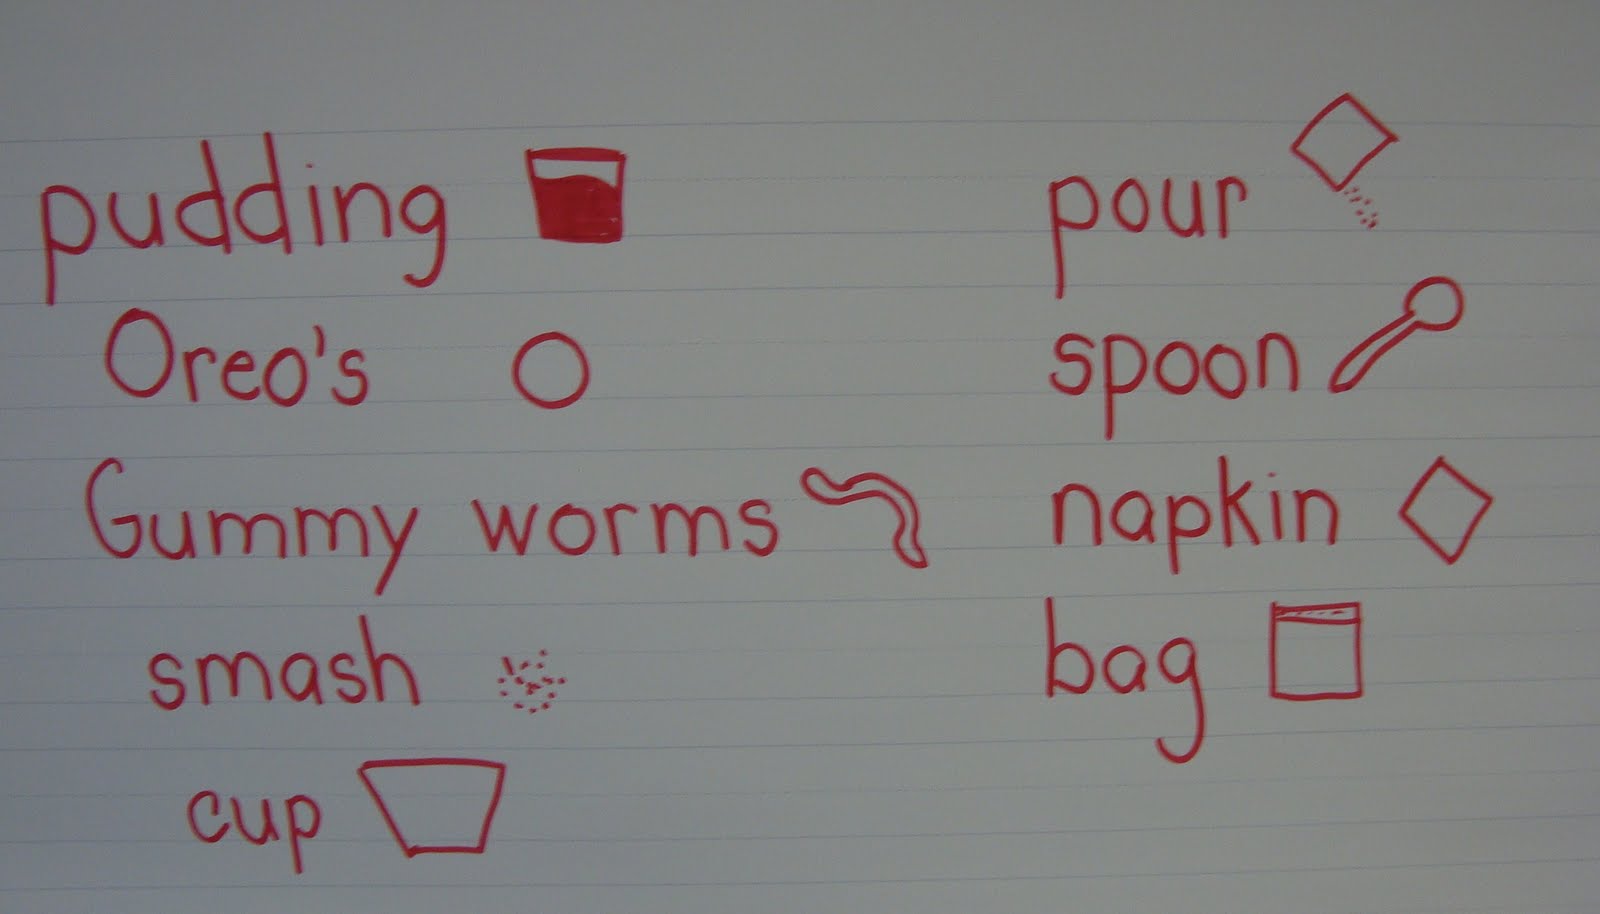 pudding
Oreo's
Gummy worms
smash
cup
pour
spoon
napkin
bag